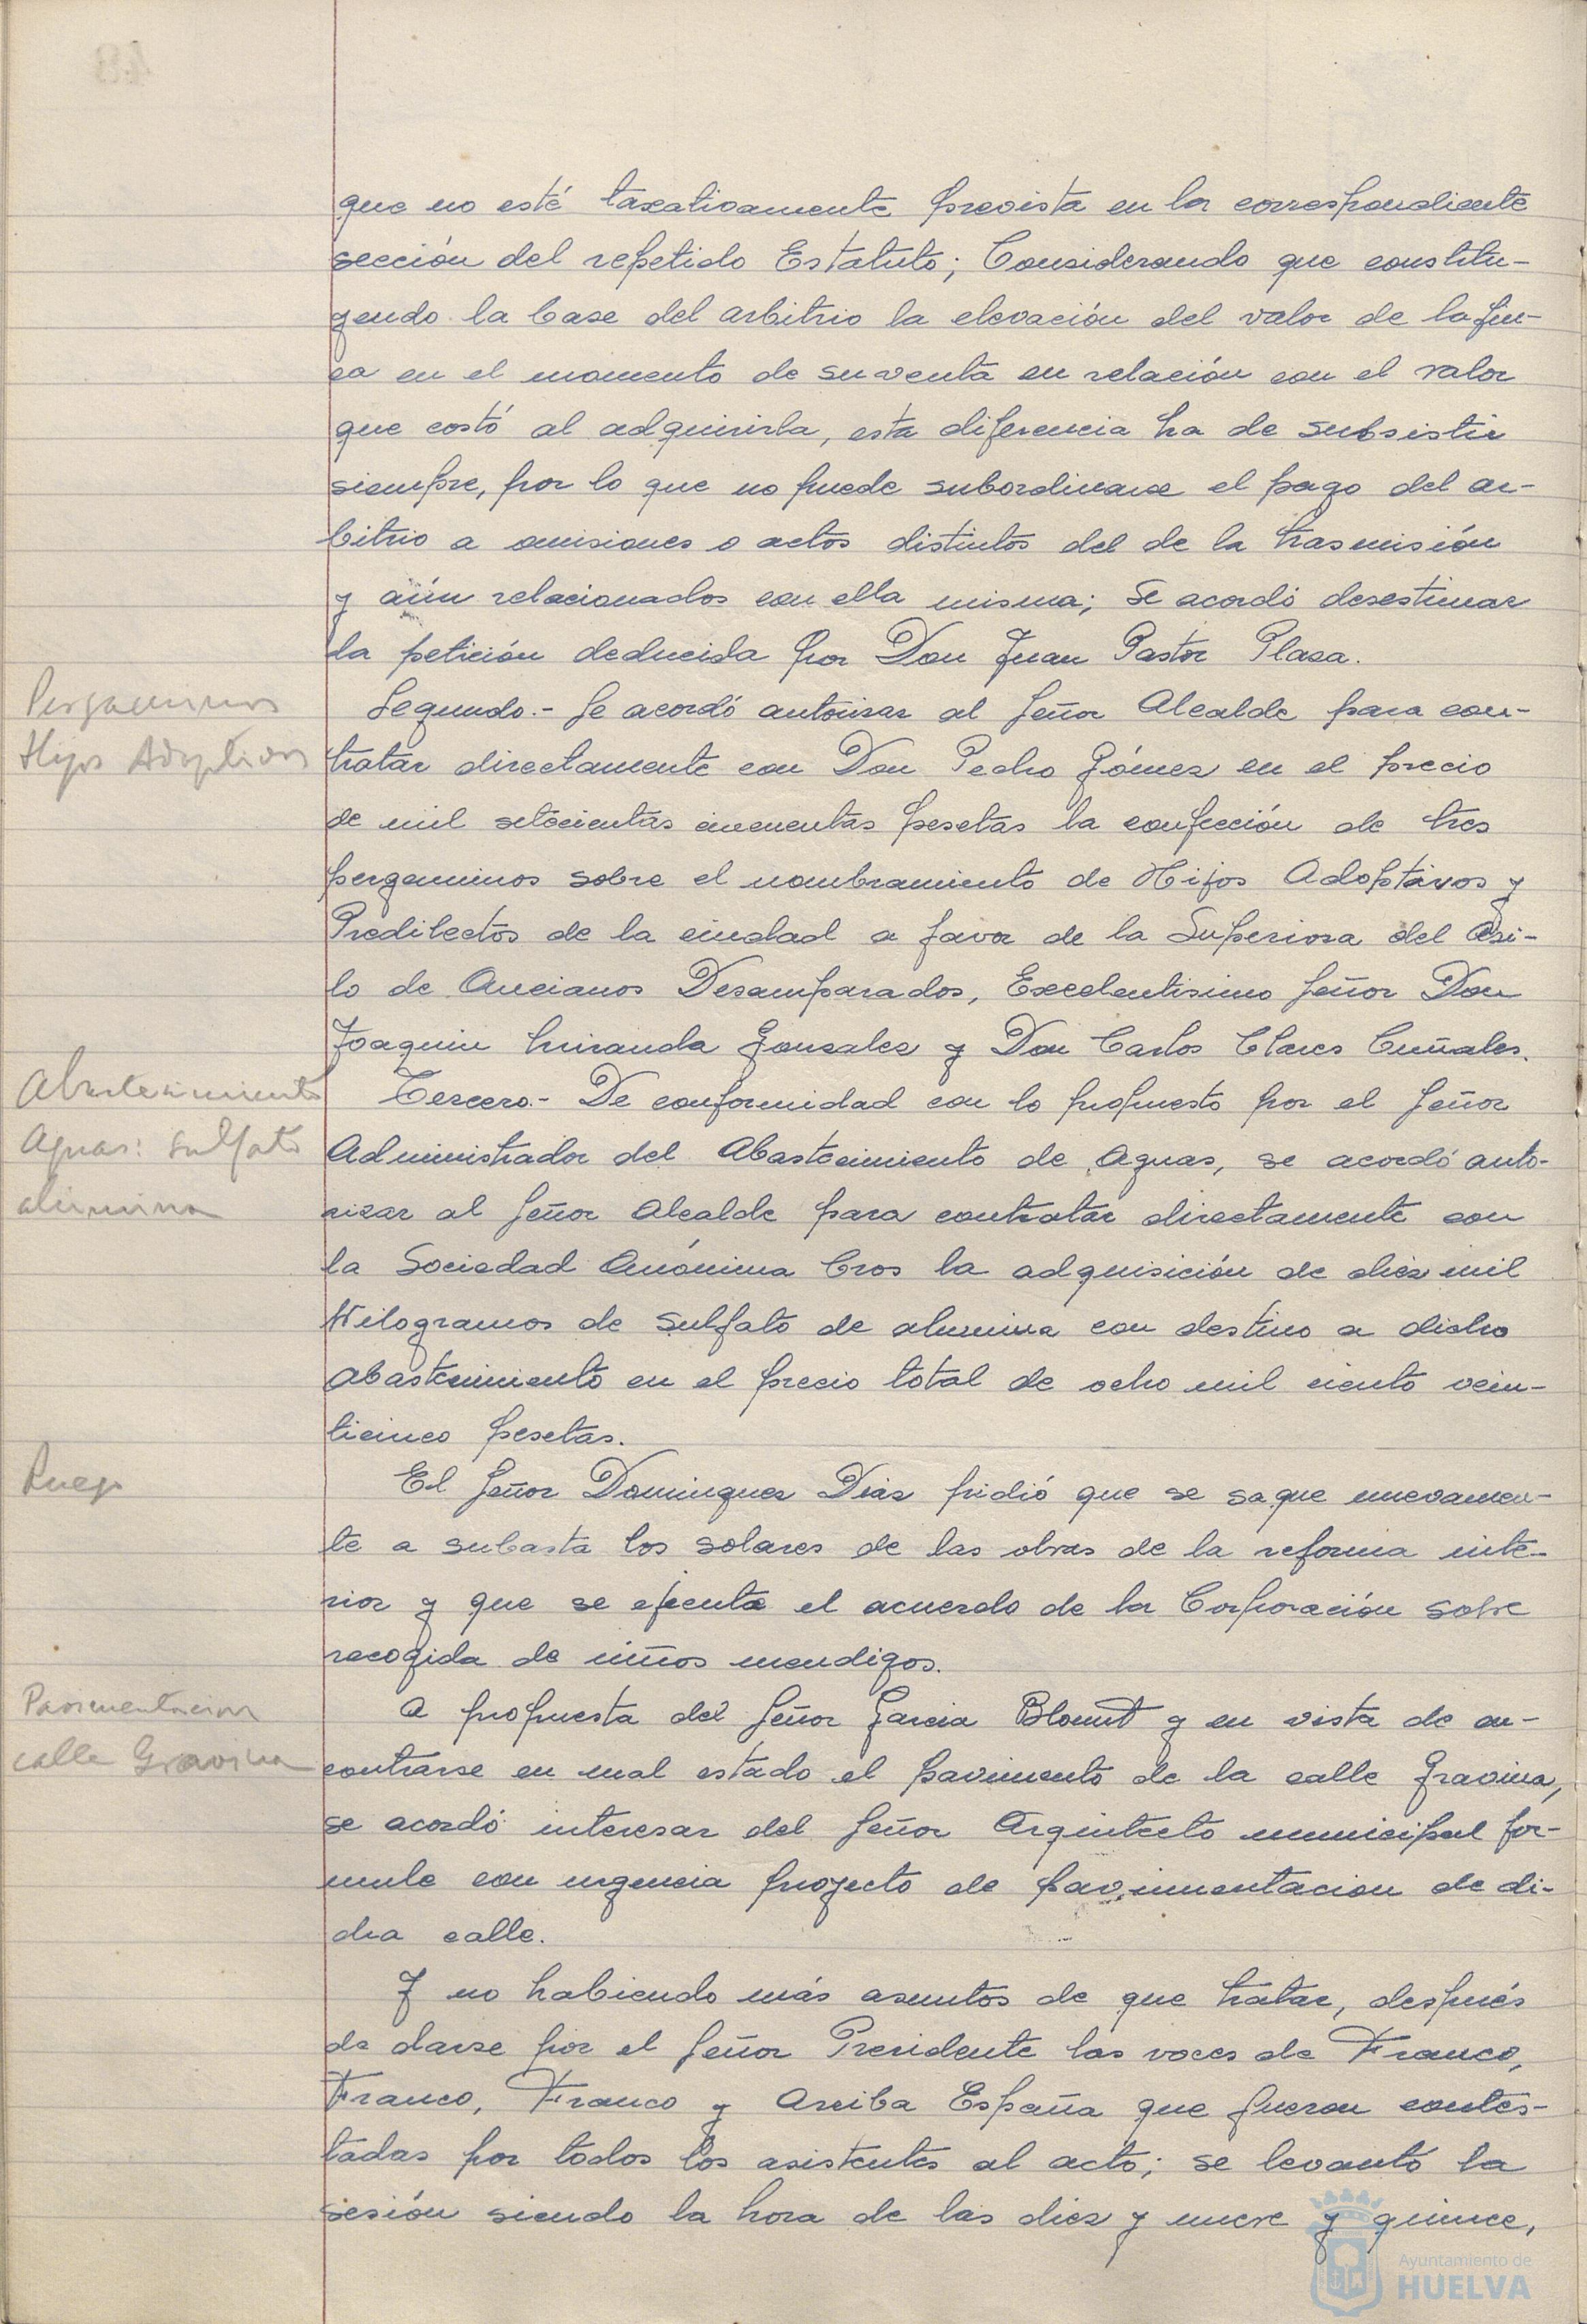 que no esté taxativamente prevista en la correspondiente
sección del repetido Estatuto; Considerando que constitu-
yendo la base del arbitrio la elevación del valor de la fin-
ca en el momento de su venta en relación con el valor
que costó al adquirirla, esta diferencia ha de subsistir
siempre, por lo que no puede subordinarse el pago del ar-
bitrio a omisiones o actos distintos del de la trasmisión
y aún relacionados con ella misma; Se acordó desestimar
la petición deducida por Don Juan Pastor Plaza.
Pergaminos
Hijos Adoptivos
Segundo.- Se acordó autorizar al Señor Alcalde para con-
tratar directamente con Don Pedro Gómez en el precio
de mil setecientas cincuentas pesetas la confección de tres
pergaminos sobre el nombramiento de Hijos Adoptivos y
Predilectos de la ciudad a favor de la Superiora del Asi-
lo de Ancianos Desamparados, Excelentisimo Señor Don
Joaquin Miranda Gonzalez y Don Carlos Clares Cuñales.
Abastecimiento
Aguas: sulfato
alumina
Tercero.- De conformidad con lo propuesto por el Señor
Administrador del Abastecimiento de Aguas, se acordó auto-
rizar al Señor Alcalde para contratar directamente con
la Sociedad Anónima Cros la adquisición de diez mil
Kilogramos de sulfato de alumina con destino a dicho
abastecimiento en el precio total de ocho mil ciento vein-
ticinco pesetas.
Ruego
El Señor Dominguez Diaz pidió que se saque nuevamen-
te a subasta los solares de las obras de la reforma inte-
rior y que se ejecute el acuerdo de la Corporación sobre
recogida de niños mendigos.
Pavimentacion
calle Gravina
A propuesta del Señor Garcia Blount y en vista de en-
contrarse en mal estado el pavimento de la calle Gravina,
se acordó interesar del Señor Arquitecto municipal for-
mule con urgencia proyecto de pavimentacion de di-
cha calle.
Y no habiendo más asuntos de que tratar, después
de darse por el Señor Presidente las voces de Franco,
Franco, Franco y Arriba España que fueron contes-
tadas por todos los asistentes al acto; se levantó la
sesión siendo la hora de las diez y nueve y quince,
Ayuntamiento de
HUELVA